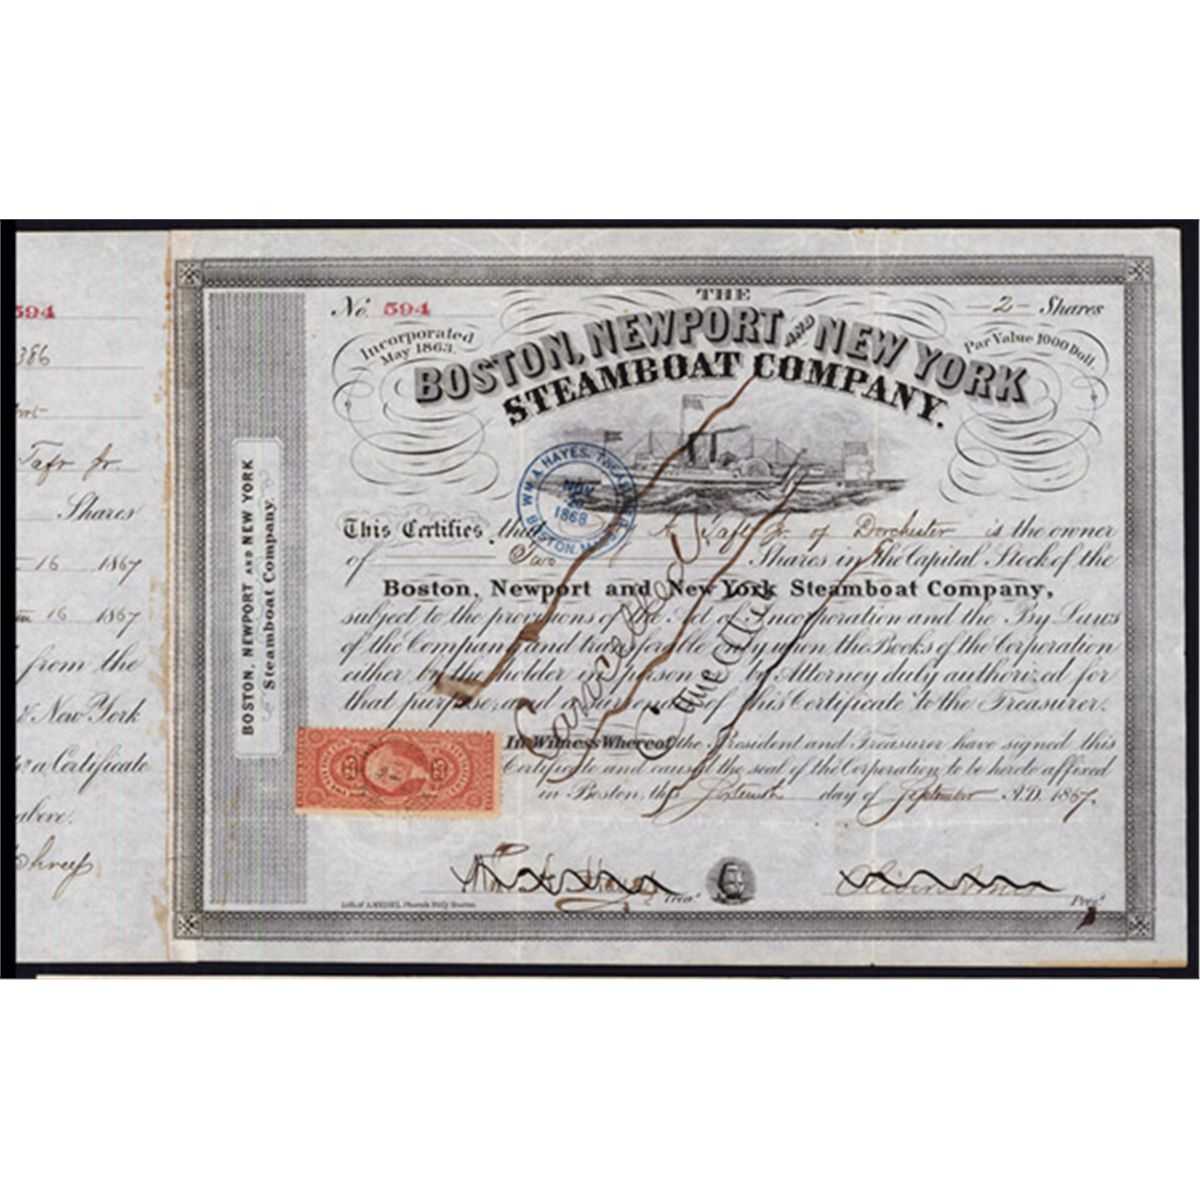 594
386
Taft Jr.
Shares
16 1867
16 1867
from the
& New York
a Certificate
above.
BOSTON, NEWPORT AND NEW YORK
Steamboat Company.
No. 594
THE
2 Shares
Incorporated
May 1863.
Par Value 1000 Doll.
BOSTON, NEWPORT AND NEW YORK
STEAMBOAT COMPANY.
WM. A. HAYES, TREASURER
NOV
20
1868
BOSTON, MASS.
This Certifies, that A Taft Jr. of Dorchester is the owner
of Two Shares in the Capital Stock of the
Boston, Newport and New York Steamboat Company,
subject to the provisions of the Act of Incorporation and the By Laws
of the Company and transferable only upon the Books of the Corporation
either by the holder in person or by Attorney duly authorized for
that purpose and a surrender of this Certificate to the Treasurer.
Cancelled
Cancelled
In Witness Whereof the President and Treasurer have signed this
Certificate and caused the seal of the Corporation to be hereto affixed
in Boston, this Sixteenth day of September A.D. 1867.
25 25
Treas.
Pres.